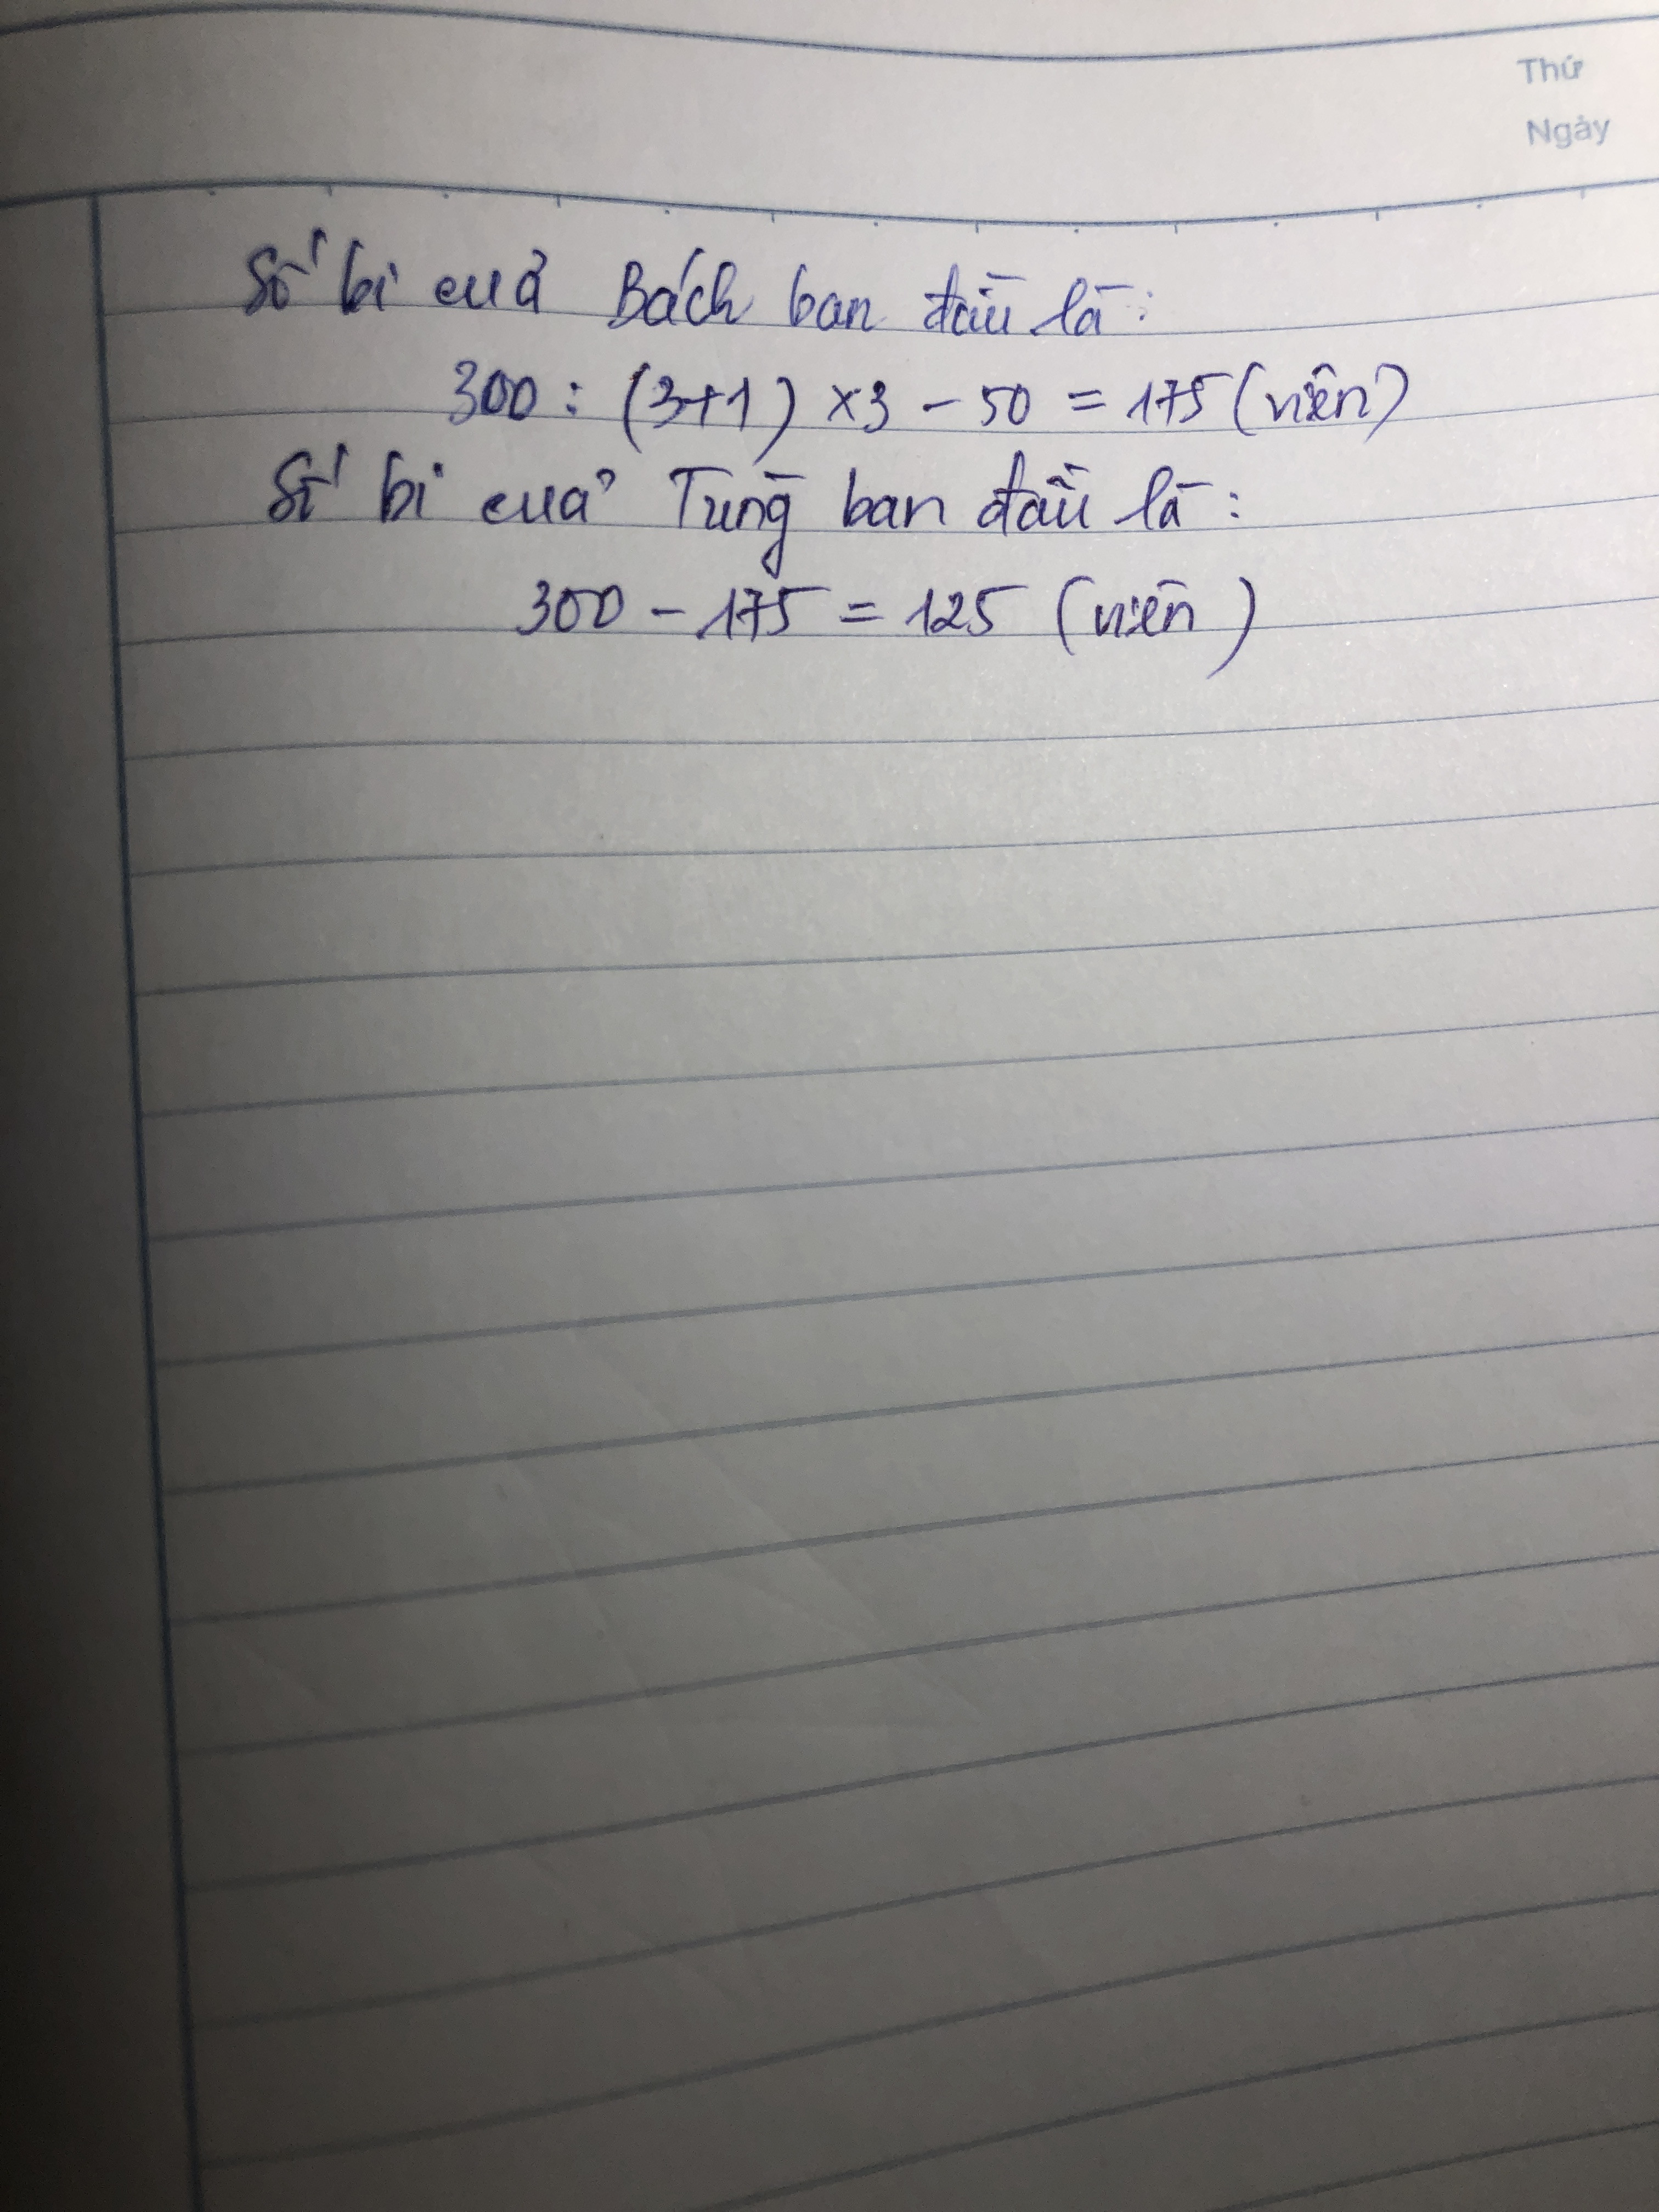 Thứ
Ngày
Số bi của Bách ban đầu là:
300 : (3+1) x3 - 50 = 175 (viên)
Số bi của Tùng ban đầu là:
300 - 175 = 125 (viên)